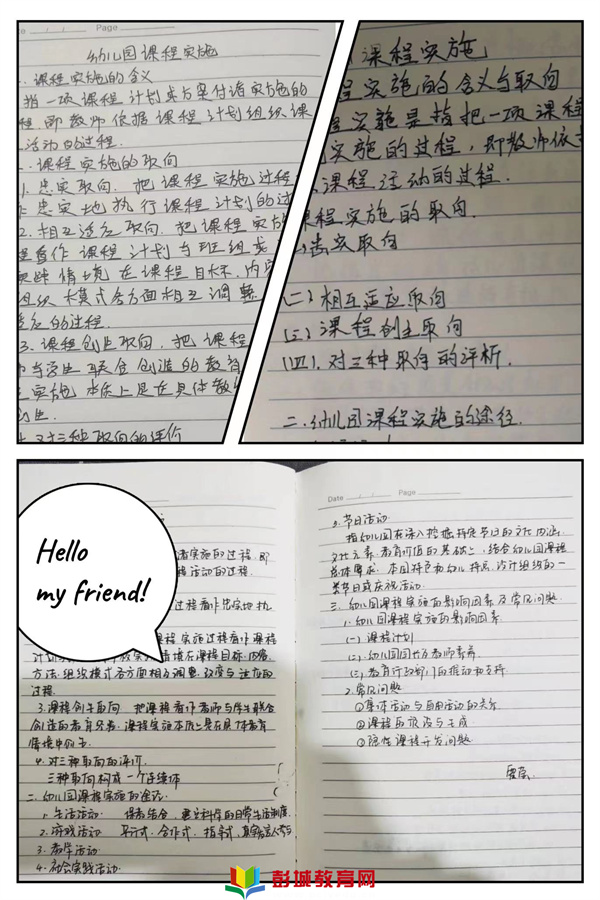 Date Page
幼儿园课程实施
一.课程实施的含义
指一项课程计划或方案付诸实施的
程.即教师依据课程计划组织课
活动的过程.
二.课程实施的取向
1.忠实取向.把课程实施过程
忠实地执行课程计划的过
2.相互适应取向.把课程实施
程看作课程计划与班组或
实践情境在课程目标.内容
组织模式各方面相互调整
适应的过程.
3.课程创生取向.把课程
师与学生联合创造的教育
程实施本质上是在具体教
创生.
4.对三种取向的评价
课程实施
程实施的含义与取向
程实施是指把一项课程
实施的过程，即教师依
课程活动的过程.
课程实施的取向.
忠实取向
(二)相互适应取向
(三)课程创生取向
(四).对三种取向的评析.
二.幼儿园课程实施的途径.
Hello
my friend!
实施的过程.即
程活动的过程.
程看作忠实地执
程实施过程看作课程
情境在课程目标.内容.
方法.组织模式各方面相互调整.改变与适应的
过程.
3.课程创生取向 把课程看作老师与学生联合
创造的教育经验.课程实施本质上是在具体教育
情境中创生.
4.对三种取向的评价
三种取向构成一个连续体
二.幼儿园课程实施的途径.
1.生活活动 保教结合.建立科学的日常生活制度.
2.游戏活动 平行式.合作式.指导式.
3.教学活动
4.社会实践活动.
Date Page
5.节日活动
指幼儿园在深入挖掘特定节日的文化内涵.
文化元素.教育价值的基础上，结合幼儿园课程
总体要求.本园特色和幼儿特点.设计组织的一
类节日或庆祝活动.
三.幼儿园课程实施的影响因素及常见问题.
1.幼儿园课程实施的影响因素.
(一)课程计划
(二)幼儿园园长及教师素养.
(三)教育行政部门的推动和支持.
2.常见问题
①集体活动与自由活动的关系
②课程预设与生成
③隐性课程开发问题
彭城教育网